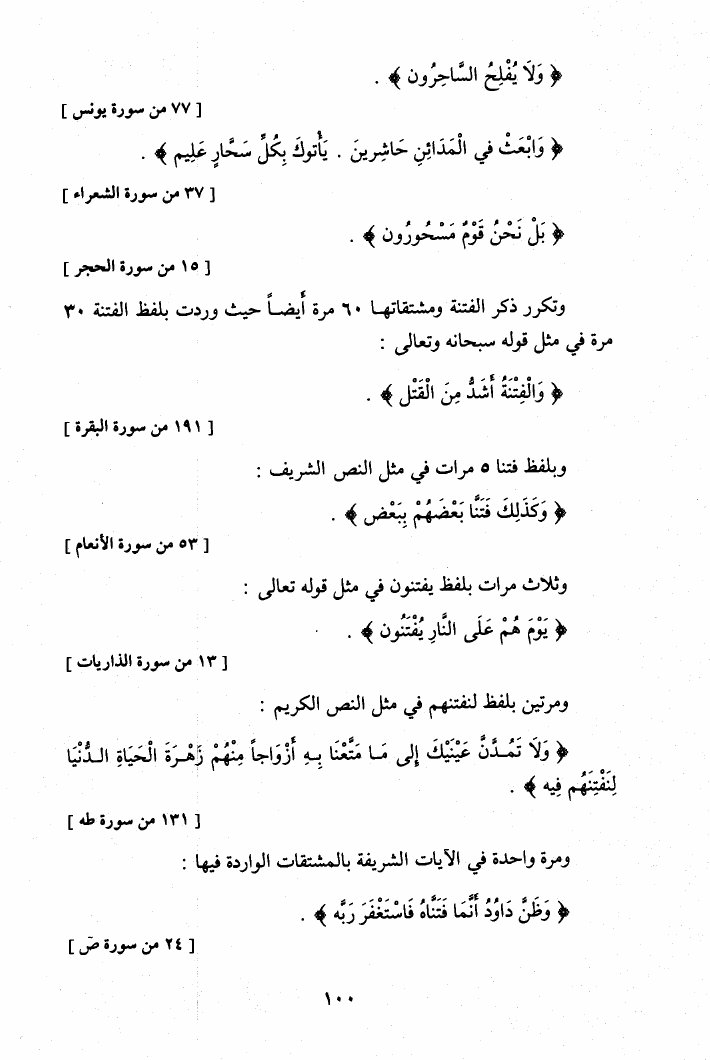 ﴿ وَلَا يُفْلِحُ السَّاحِرُون ﴾ .
[ ٧٧ من سورة يونس ]
﴿ وَابْعَثْ في الْمَدَائِنِ حَاشِرينَ . يَأْتوكَ بِكُلِّ سَحَّارٍ عَلِيم ﴾ .
[ ٣٧ من سورة الشعراء ]
﴿ بَلْ نَحْنُ قَوْمٌ مَسْحُورُون ﴾ .
[ ١٥ من سورة الحجر ]
وتكرر ذكر الفتنة ومشتقاتها ٦٠ مرة أيضاً حيث وردت بلفظ الفتنة ٣٠
مرة في مثل قوله سبحانه وتعالى :
﴿ وَالْفِتْنَةُ أَشَدُّ مِنَ الْقَتْل ﴾ .
[ ١٩١ من سورة البقرة ]
وبلفظ فتنا ٥ مرات في مثل النص الشريف :
﴿ وَكَذَلِكَ فَتَنَّا بَعْضَهُمْ بِبَعْض ﴾ .
[ ٥٣ من سورة الأنعام ]
وثلاث مرات بلفظ يفتنون في مثل قوله تعالى :
﴿ يَوْمَ هُمْ عَلَى النَّارِ يُفْتَنُون ﴾ .
[ ١٣ من سورة الذاريات ]
ومرتين بلفظ لنفتنهم في مثل النص الكريم :
﴿ وَلَا تَمُدَّنَّ عَيْنَيْكَ إلى مَا مَتَّعْنَا بِهِ أَزْوَاجاً مِنْهُمْ زَهْرَةَ الْحَيَاةِ الدُّنْيَا
لِنَفْتِنَهُم فِيه ﴾ .
[ ١٣١ من سورة طه ]
ومرة واحدة في الآيات الشريفة بالمشتقات الواردة فيها :
﴿ وَظَنَّ دَاوُدُ أَنَّمَا فَتَنَّاهُ فَاسْتَغْفَرَ رَبَّه ﴾ .
[ ٢٤ من سورة صۤ ]
١٠٠